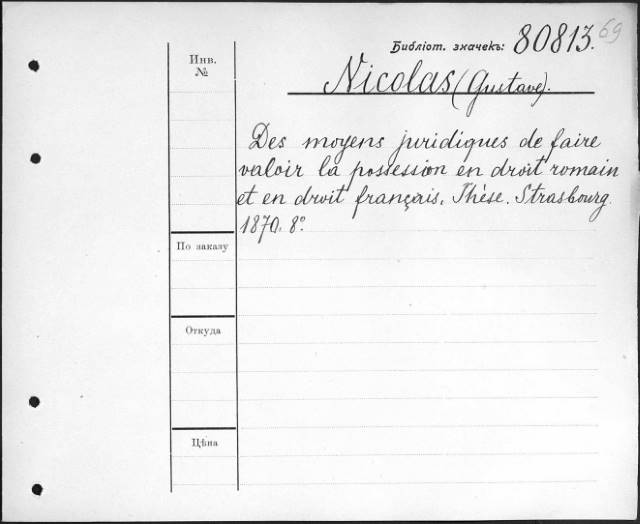 Библіот. значекъ: 80813. 69
Инв.
№
Nicolas (Gustave).
Des moyens juridiques de faire
valoir la possession en droit romain
et en droit français. Thèse. Strasbourg.
1870. 8º.
По заказу
Откуда
Цѣна